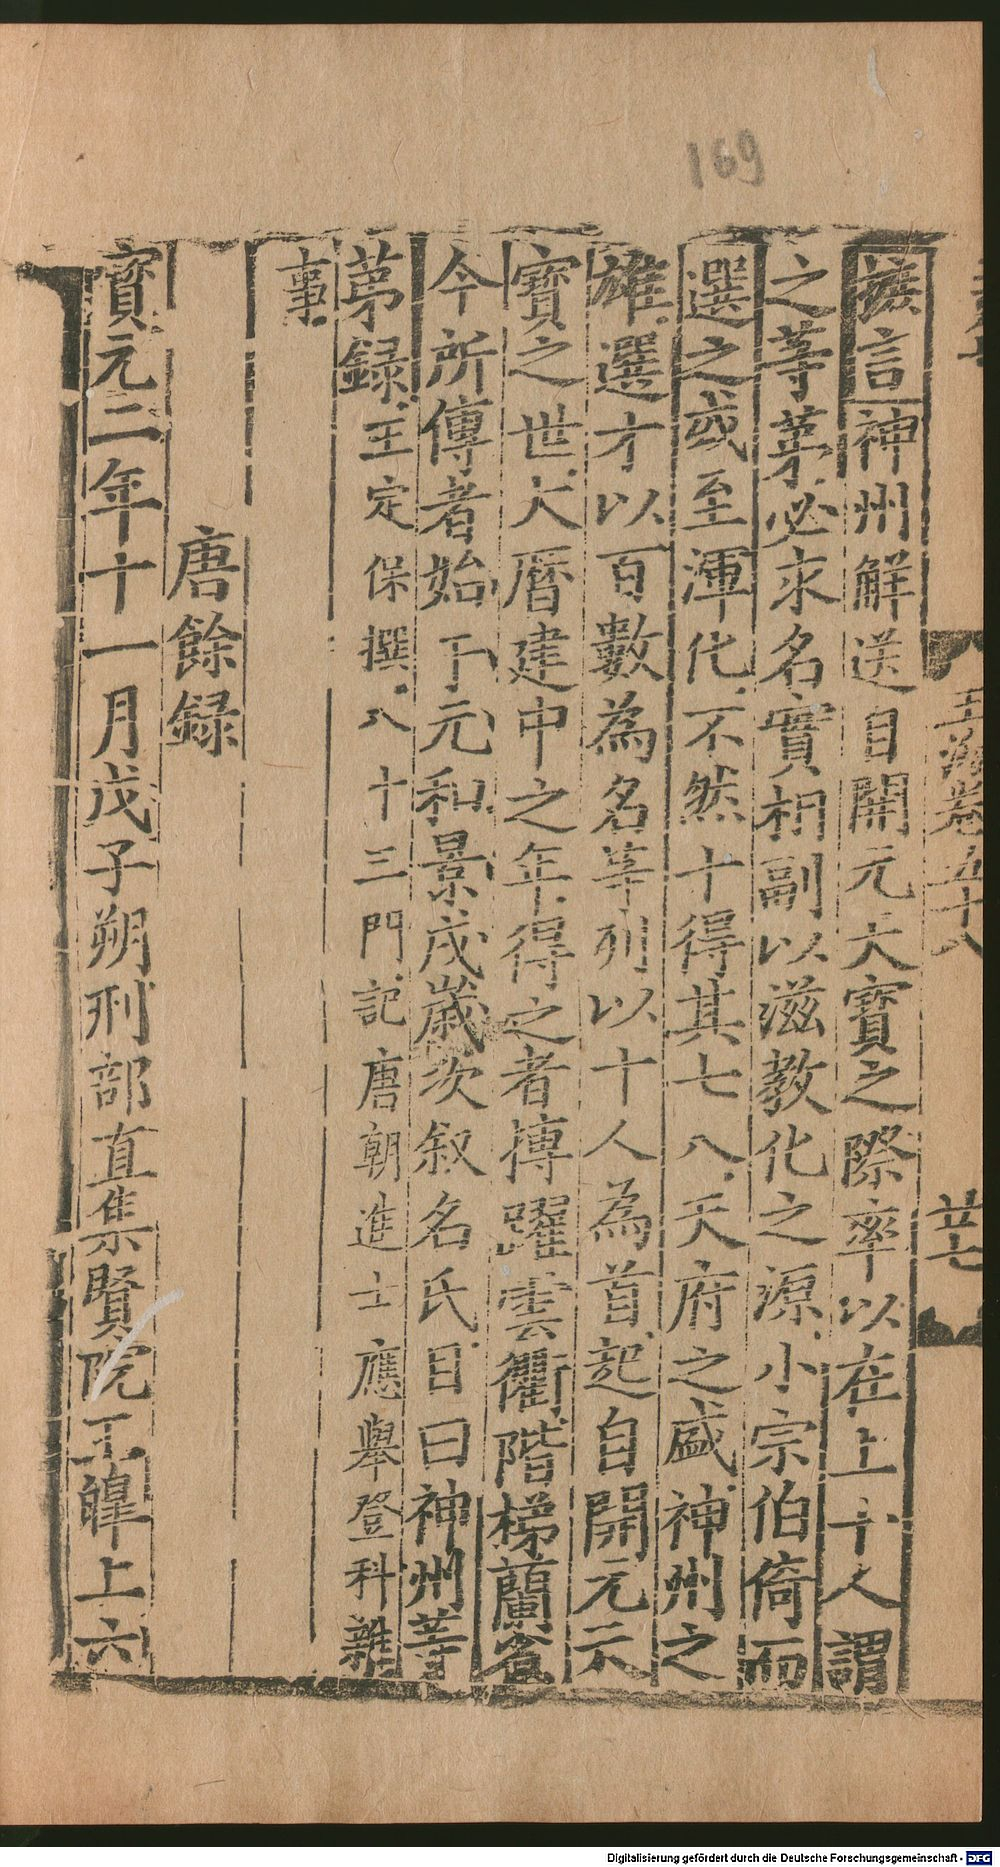 169
玉海卷五十八
廿七
摭言神州解送自開元天寶之際率以在上十人謂
之等苐必求名實相副以滋教化之源小宗伯倚而
選之或至渾化不然十得其七八天府之盛神州之
雄選才以百數為名等列以十人為首起自開元天
寶之世大曆建中之年得之者摶躍雲衢階梯蘭省
今所傳者始于元和景戌歲次叙名氏目曰神州等
苐録王定保撰八十三門記唐朝進士應舉登科雜
事
唐餘録
寶元二年十一月戊子朔刑部直集賢院王皞上六
Digitalisierung gefördert durch die Deutsche Forschungsgemeinschaft - DFG